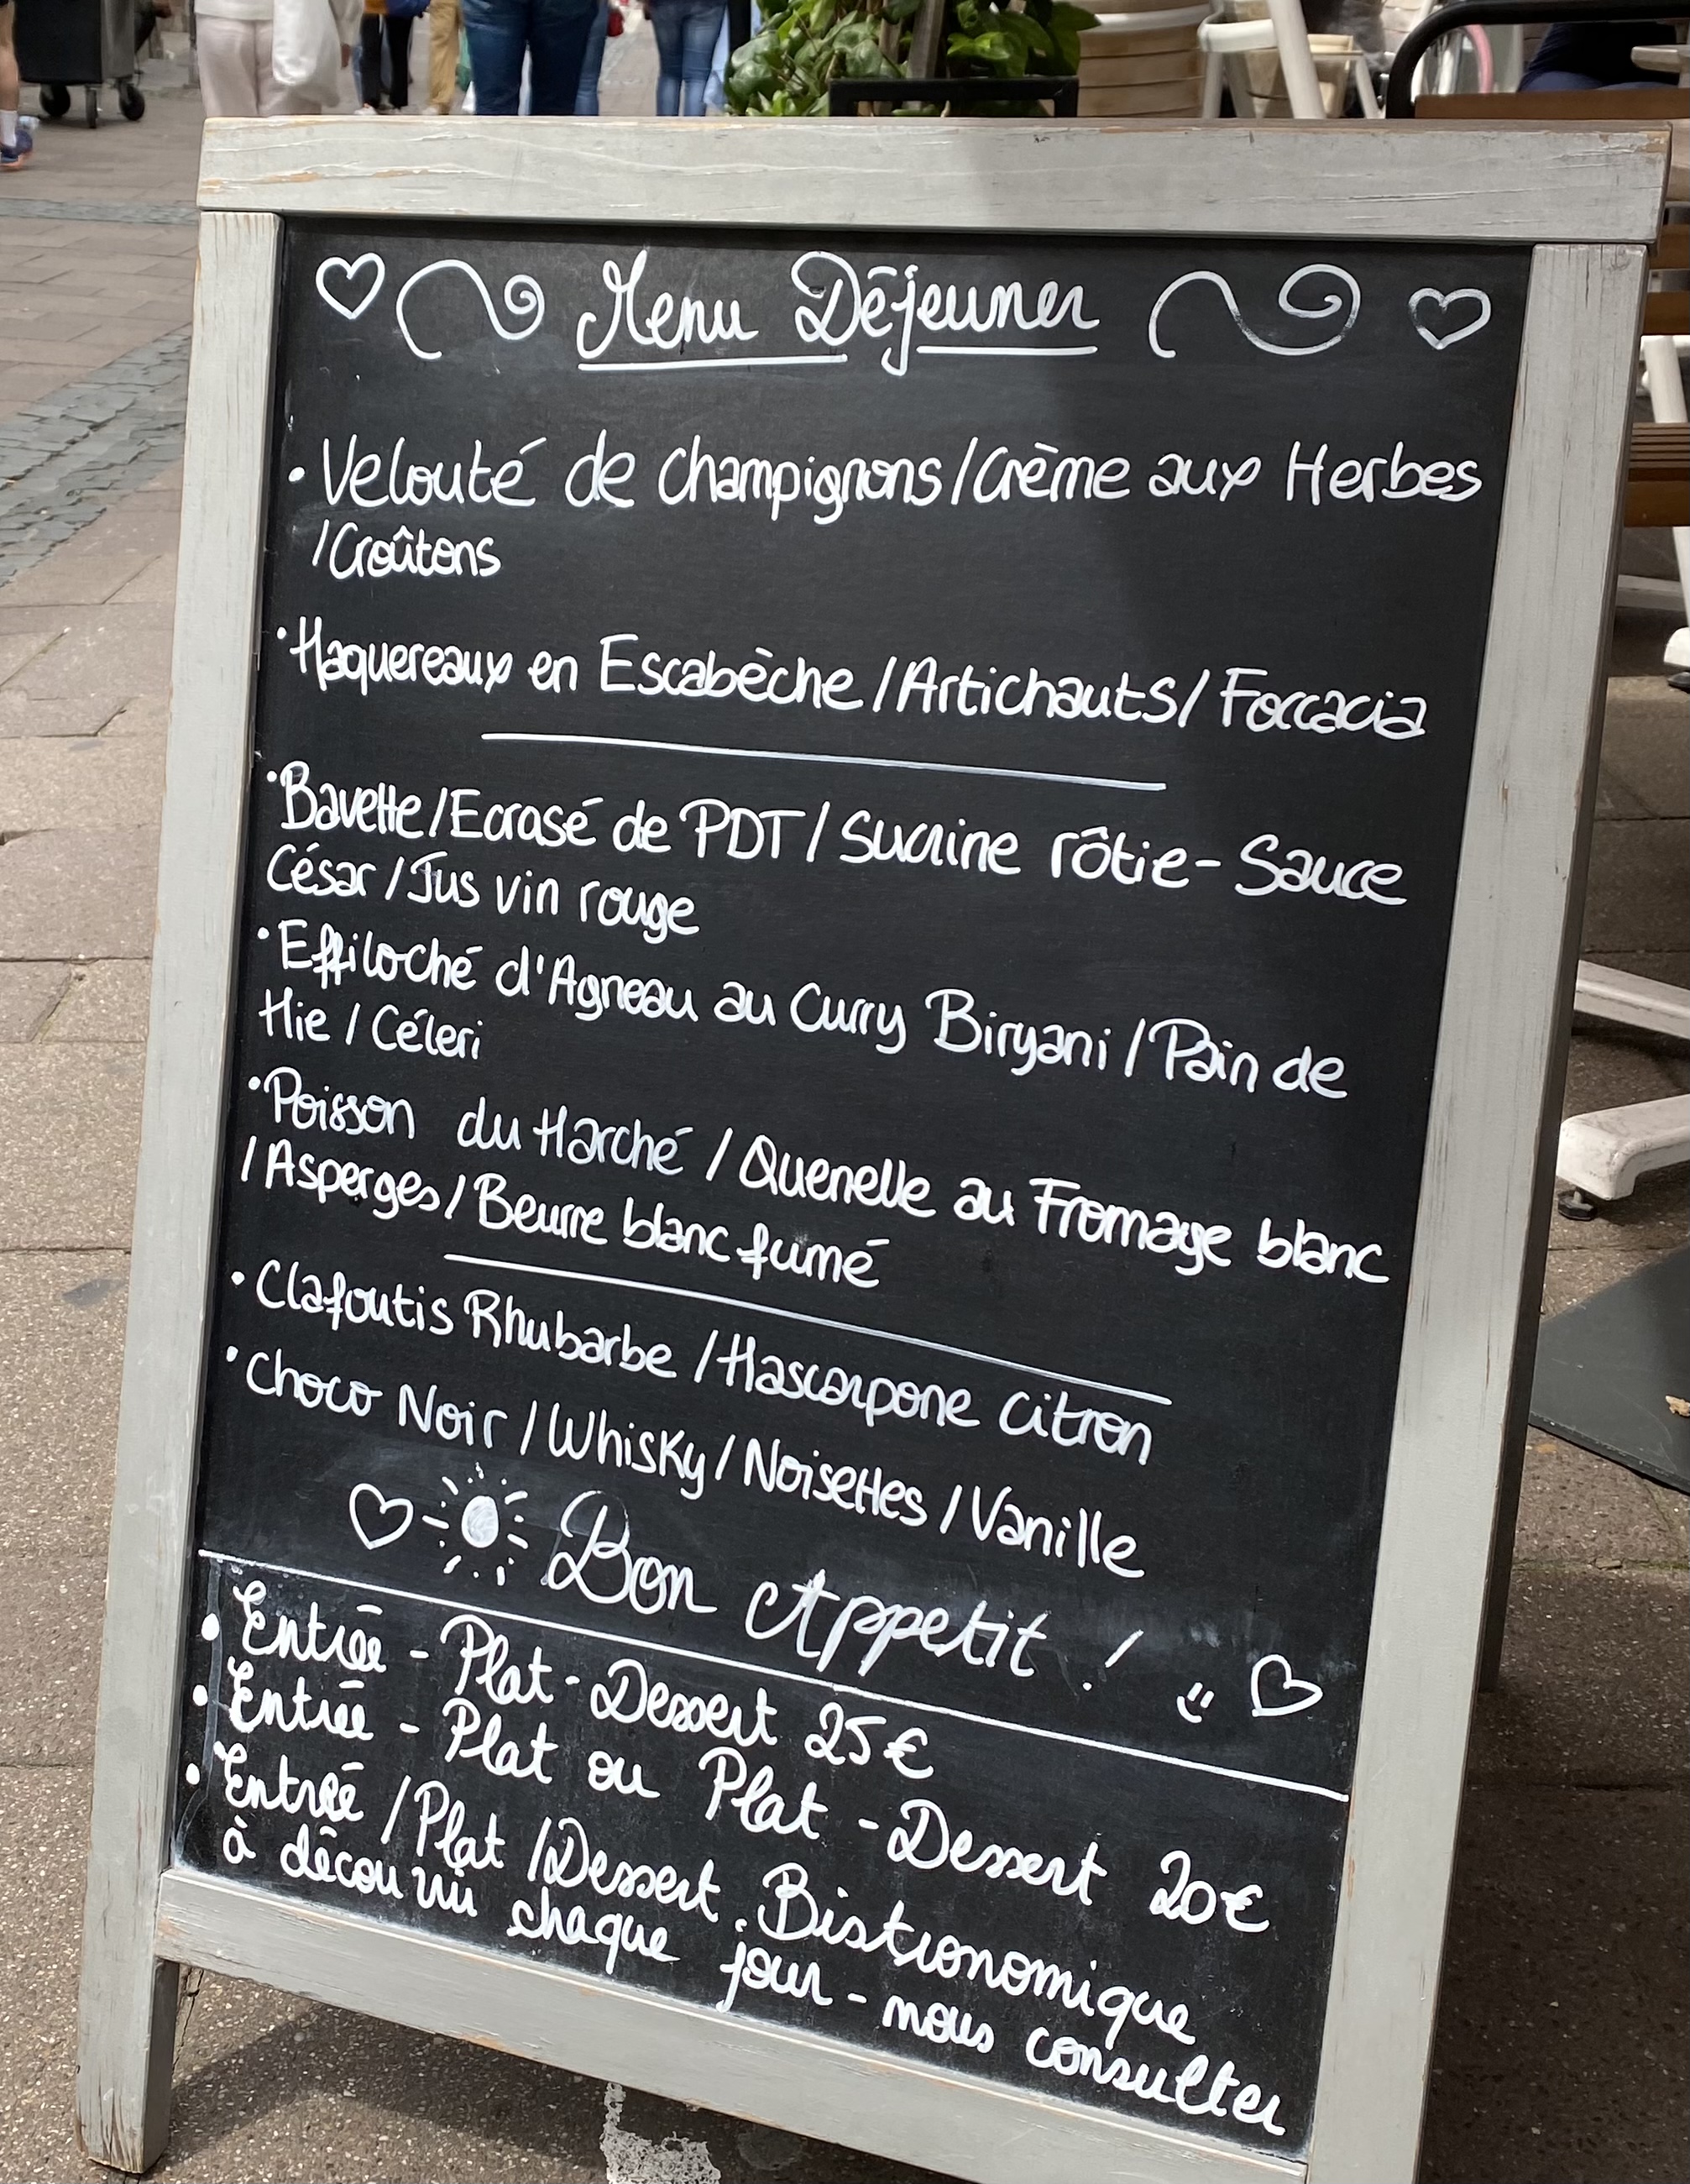 Menu Déjeuner
• Velouté de Champignons/Crème aux Herbes
/Croûtons
• Maquereaux en Escabèche/Artichauts/Foccacia
• Bavette/Ecrasé de PDT/Sucrine rôtie-Sauce
César/Jus vin rouge
• Effiloché d'Agneau au Curry Biryani/Pain de
Mie/Céleri
• Poisson du Marché/Quenelle au Fromage blanc
/Asperges/Beurre blanc fumé
• Clafoutis Rhubarbe/Mascarpone Citron
• Choco Noir/Whisky/Noisettes/Vanille
Bon Appetit !
• Entrée - Plat - Dessert 25€
• Entrée - Plat ou Plat - Dessert 20€
• Entrée /Plat /Dessert . Bistronomique
à découvrir chaque jour - nous consulter